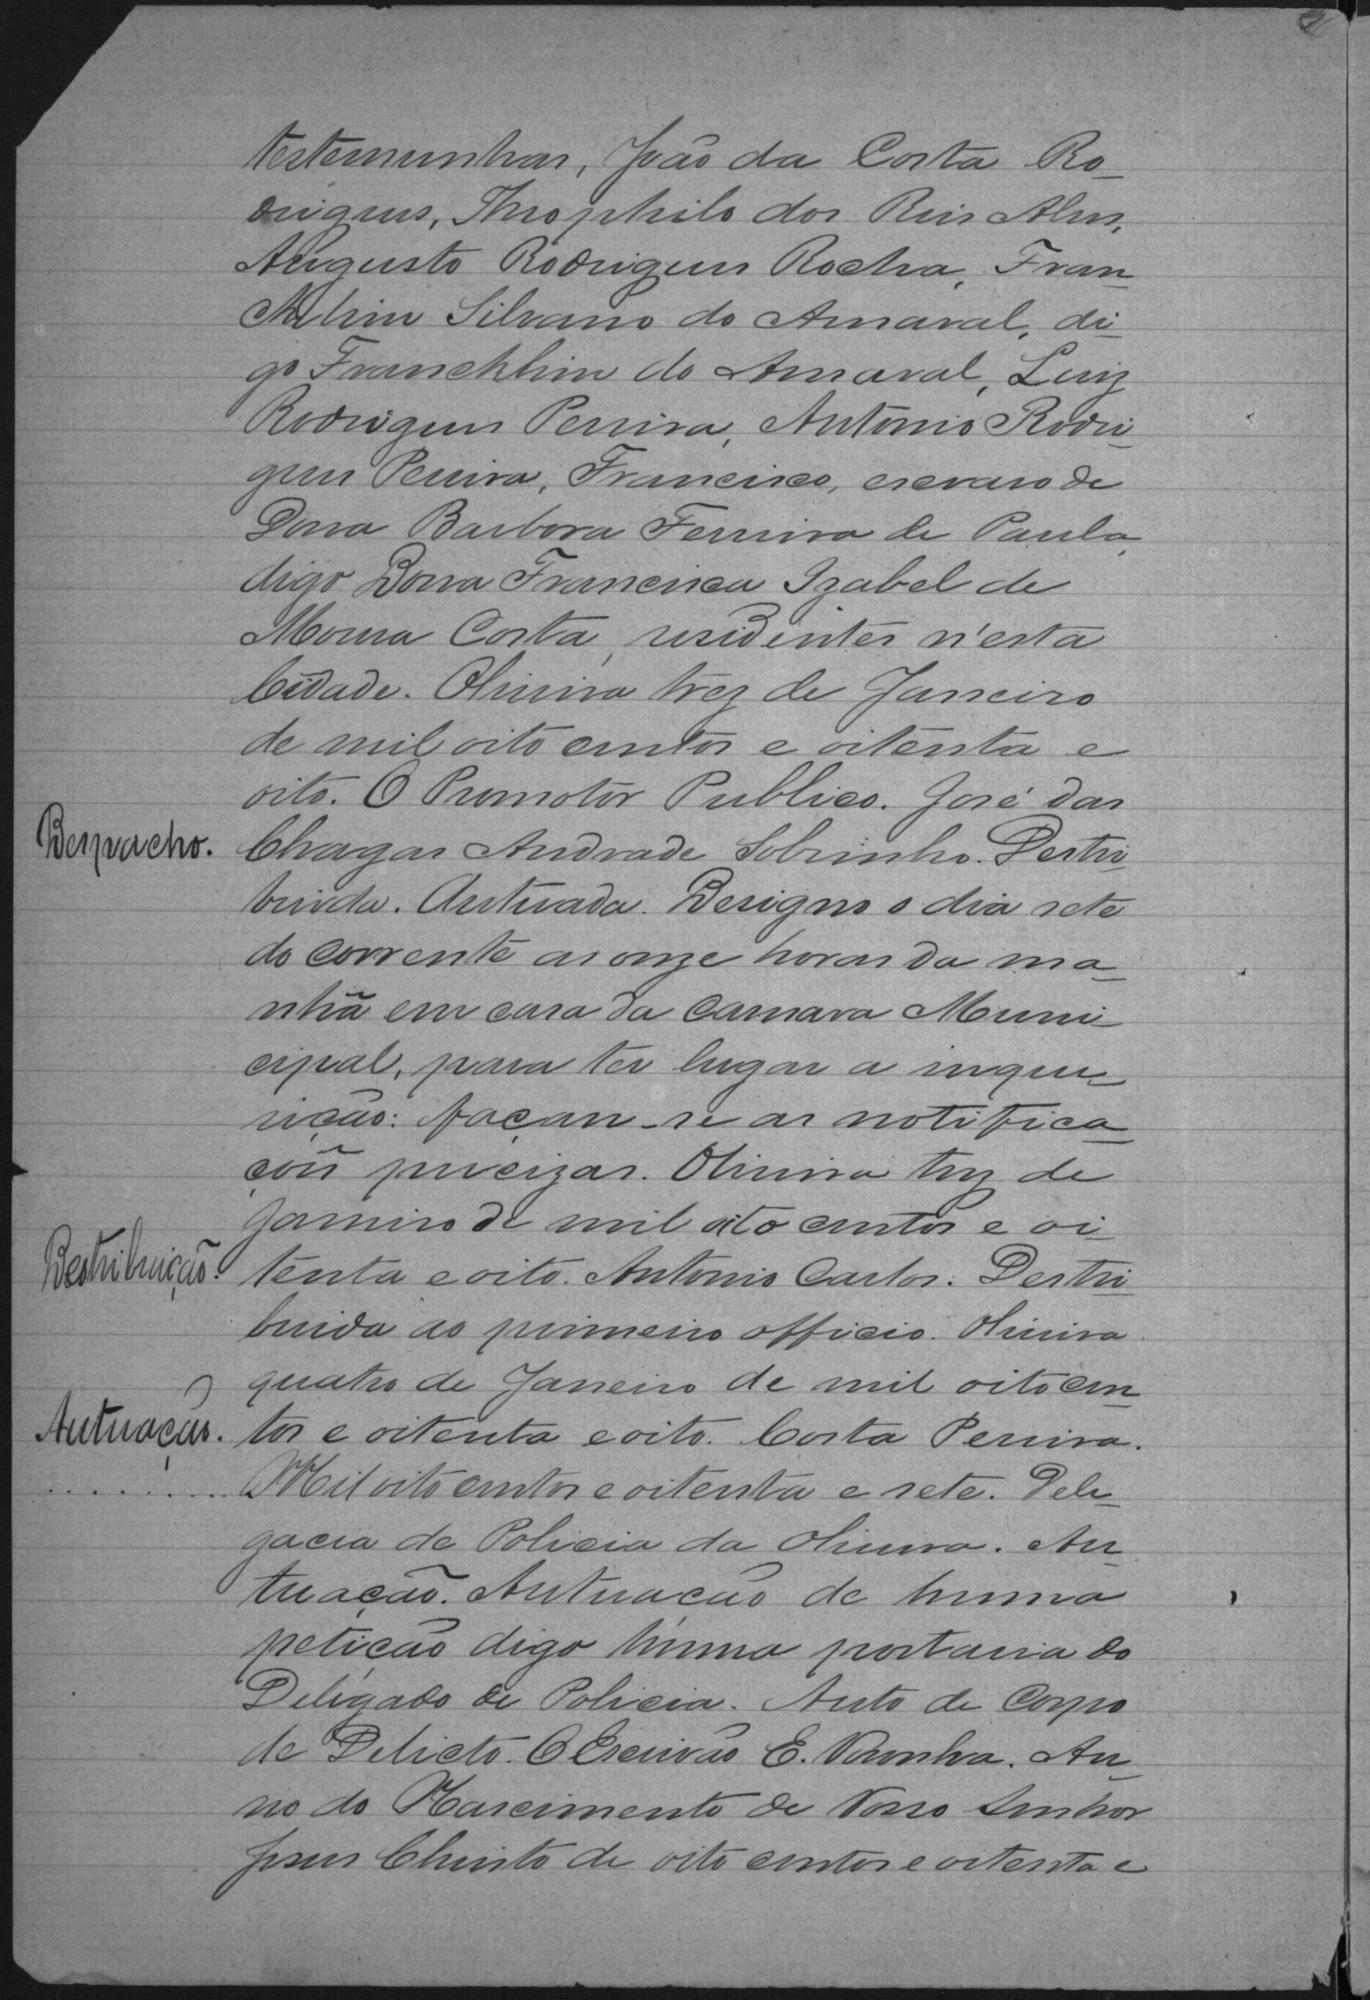 testemunhas, João da Costa Ro-
drigues, Theophilo dos Reis Alves,
Augusto Rodrigues Rocha, Fran-
cklin Silvano do Amaral, di-
go Francklin do Amaral, Luiz
Rodrigues Pereira, Antonio Rodri-
gues Pereira, Francisco, escravo de
Dona Barbora Ferreira de Paula,
digo Dona Francisca Izabel de
Moura Costa, residentes n'esta
Cidade. Oliveira trez de Janeiro
de mil oito centos e oitenta e
oito. O Promotor Publico. José das
Despacho. Chagas Andrade Sobrinho. Destri-
buida. Autuada. Designo o dia sete
do corrente as onze horas da ma-
nhã em casa da Camara Muni-
cipal, para ter lugar a inque-
rição: façam-se as notifica-
ções precizas. Oliveira trez de
Janeiro de mil oito centos e oi-
Destribuição. tenta e oito. Antonio Carlos. Destri-
buida ao primeiro officio. Oliveira
quatro de Janeiro de mil oitocen-
Autuação. tos e oitenta e oito. Costa Pereira.
......... Mil oito centos e oitenta e sete. Dele-
gacia de Policia da Oliveira. Au-
tuação. Autuação de huma
petição digo huma portaria do
Delegado de Policia. Auto de Corpo
de Delicto. O Escrivão E. Noronha. An-
no do Nascimento de Nosso Senhor
Jesus Christo de oito centos e oitenta e